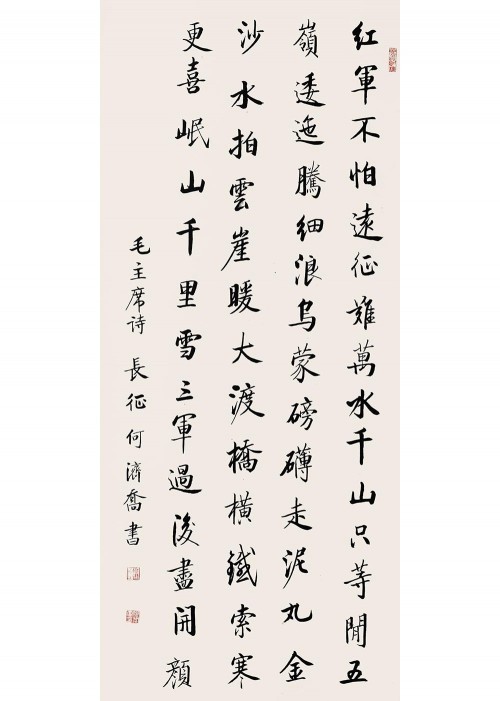 紅軍不怕遠征難萬水千山只等閒五
嶺逶迤騰細浪烏蒙磅礴走泥丸金
沙水拍雲崖暖大渡橋橫鐵索寒
更喜岷山千里雪三軍過後盡開顏
毛主席诗 長征 何濟喬書